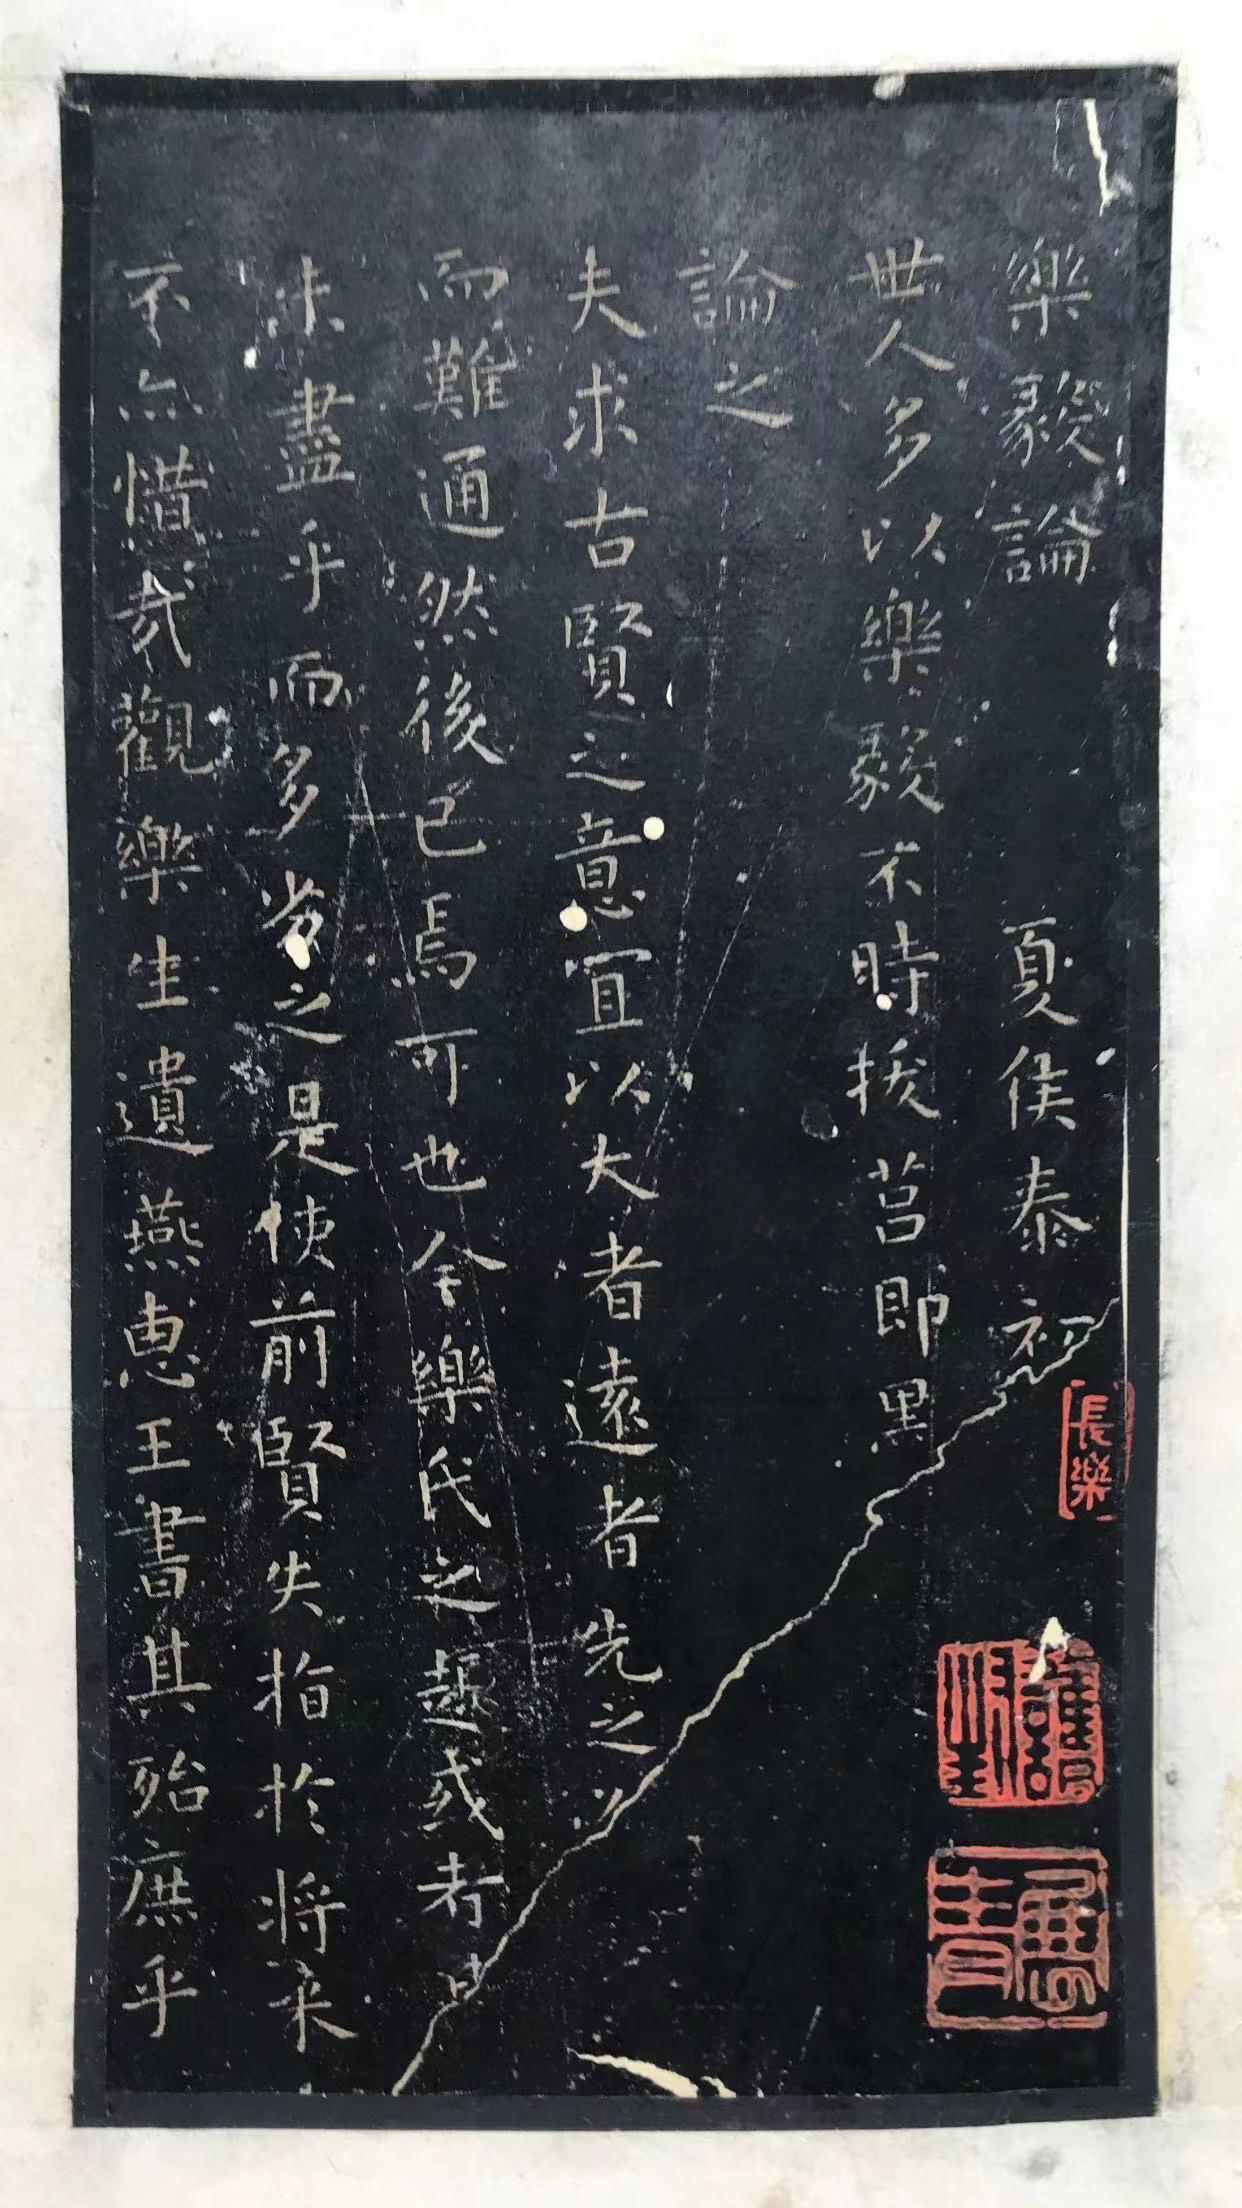 樂毅論 夏侯泰初
世人多以樂毅不時拔莒即墨
論之
夫求古賢之意宜以大者遠者先之
而難通然後已焉可也今樂氏之趣或者其
未盡乎而多劣之是使前賢失指於將来
不亦惜哉觀樂生遺燕惠王書其殆庶乎
長樂